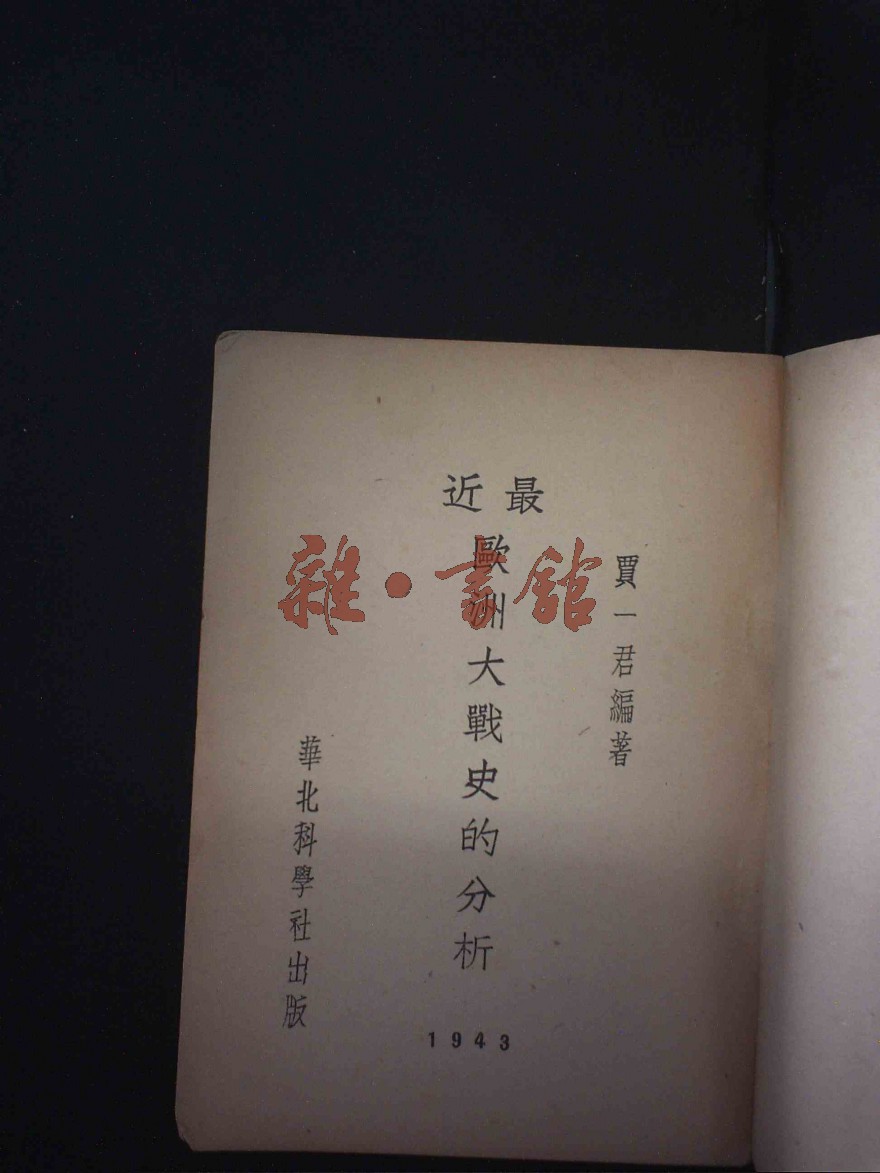 賈一君編著
最近
歐洲大戰史的分析
華北科學社出版
1943
雜·書館